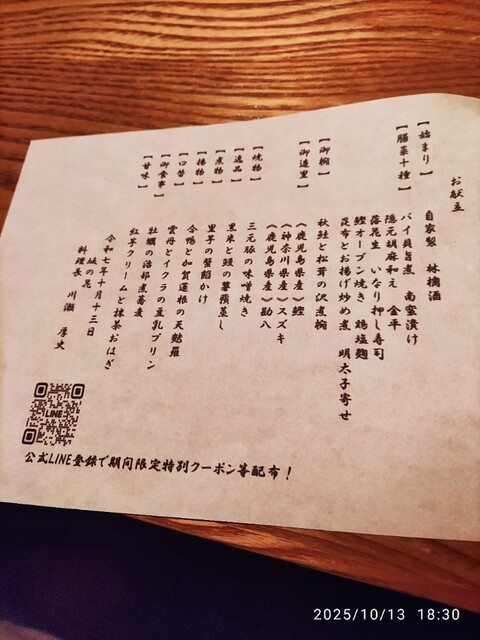 お献立
【始まり】 自家製 林檎酒
【膳菜十種】 バイ貝旨煮 南蛮漬け
隠元胡麻和え 金平
落花生 いなり押し寿司
鰹オーブン焼き 鶏塩麹
昆布とお揚げ炒め煮 明太子寄せ
【御椀】 秋鮭と松茸の沢煮椀
【御造里】 《鹿児島県産》鰹
《神奈川県産》スズキ
《鹿児島県産》勘八
【焼物】 三元豚の味噌焼き
【逸品】 黒米と鰻の飯蒸し
【煮物】 里芋の蟹餡かけ
【揚物】 合鴨と加賀蓮根の天麩羅
【口替】 雲丹とイクラの豆乳プリン
【御食事】 牡蠣の治部煮蕎麦
【甘味】 紅芋クリームと抹茶おはぎ
令和七年十月十三日
城の花
料理長 川瀬 厚史
LINE
公式LINE登録で期間限定特別クーポン等配布!
2025/10/13 18:30